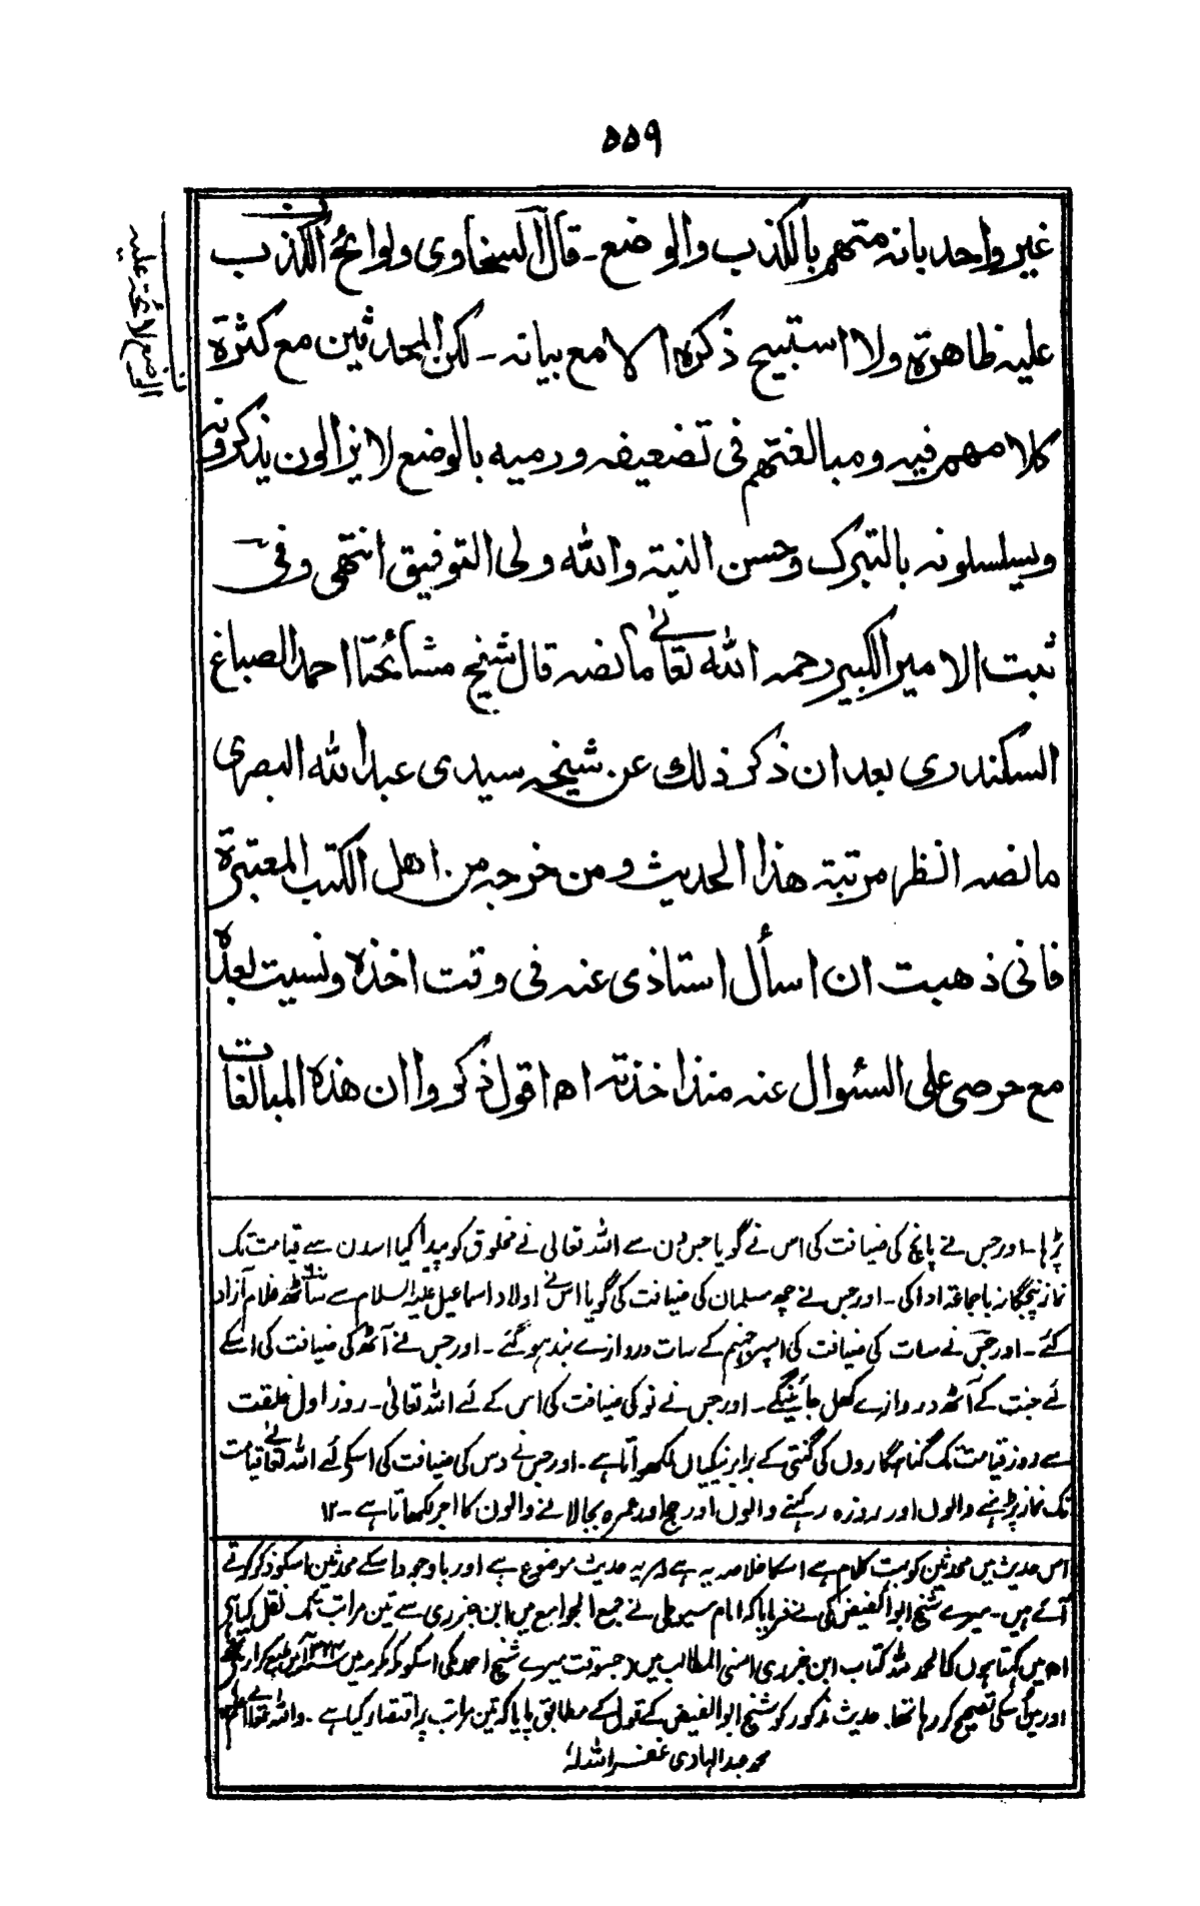 ٥٥٩
غير واحد بانه متهم بالكذب والوضع ـ قال السخاوى ولوائح الكذب
عليه ظاهرة ولا استبيح ذكره الا مع بيانه ـ لكن المحدثين مع كثرة
كلامهم فيه ومبالغتهم فى تضعيفه ورميه بالوضع لا يزالون يذكرونه
ويسلسلونه بالتبرك وحسن النية والله ولى التوفيق انتهى وفى
ثبت الامير الكبير رحمه الله تعالى ما نصه قال شيخ مشائخنا احمد الصباغ
السكندرى بعد ان ذكر ذلك عن شيخه سيدى عبد الله البصرى
ما نصه انظر مرتبة هذا الحديث ومن خرجه من اهل الكتب المعتبرة
فانى ذهبت ان اسأل استاذى عنه فى وقت اخذه ونسيت بعده
مع حرصى على السئوال عنه منذ اخذته اه اقول ذكروا ان هذه المبالغات
پڑہا ـ اور جس نے پانچ کی ضیافت کی اس نے گویا جس دن سے اللہ تعالی نے مخلوق کو پیدا کیا اسدن سے قیامت تک
نماز پنجگانہ باجماعۃ ادا کی ـ اور جس نے چھ مسلمان کی ضیافت کی گویا اس نے اولاد اسماعیل علیہ السلام سے ساٹھ غلام آزاد
کئے ـ اور جس نے سات کی ضیافت کی اسپر جہنم کے سات دروازے بند ہو گئے ـ اور جس نے آٹھ کی ضیافت کی اسکے
لئے جنت کے آٹھ دروازے کھل جائینگے ـ اور جس نے نو کی ضیافت کی اس کے لئے اللہ تعالیٰ ـ روز اول خلقت
سے روز قیامت تک گناہگاروں کی گنتی کے برابر نیکیاں لکھواتا ہے ـ اور جس نے دس کی ضیافت کی اسکے لئے اللہ تعالیٰ قیامت
تک نماز پڑہنے والوں اور روزہ رکہنے والوں اور حج اور عمرہ بجا لانے والون کا اجر لکھاتا ہے ـ ۱۲
اس حدیث میں محدثین کو بہت کلام ہے اسکا خلاصہ یہ ہے کہ یہ حدیث موضوع ہے اور باوجود اسکے محدثین اسکو ذکر کرتے
آئے ہیں ـ میرے شیخ ابو الفیض مکی نے فرمایا کہ امام سیوطی نے جمع الجوامع میں ابن جزری سے تین مراتب تک نقل کیا ہے
اہ میں کہتا ہوں کہ الحمد للہ کتاب ابن جزری اسنی المطالب میں (جسوقت میرے شیخ احمد مکی اسکو مکہ مکرمہ میں
اور میں اسکی تصحیح کر رہا تھا. حدیث مذکور کو شیخ ابو الفیض کے قول کے مطابق پایا کہ تین مراتب پر اقتصار کیا ہے . واللہ تعالیٰ اعلم
محمد عبد الہادی غفر اللہ لہ